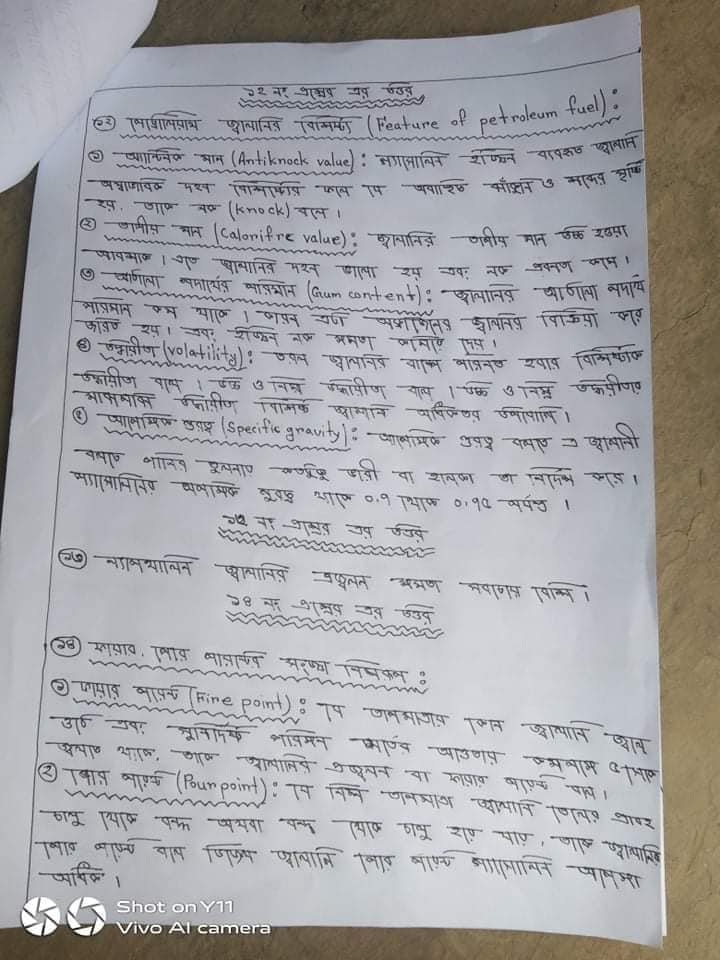 ১২ নং প্রশ্নের এর উত্তর
১২ পেট্রোলিয়াম জ্বালানির বৈশিষ্ট্য (Feature of petroleum fuel):
১ অ্যান্টিনক মান (Antiknock value): গ্যাসোলিন ইঞ্জিনে ব্যবহৃত জ্বালানি
অস্বাভাবিক দহন বৈশিষ্ট্যের ফলে যে অবাঞ্ছিত ঝাঁকুনি ও শব্দের সৃষ্টি
হয়, তাকে নক (knock) বলে।
২ তাপীয় মান (Calorifre value): জ্বালানির তাপীয় মান উচ্চ হওয়া
আবশ্যক। এতে জ্বালানির দহন ভালো হয় এবং নক প্রবণতা কমে।
৩ আঠালো পদার্থের পরিমাণ (Gum content): জ্বালানির আঠালো পদার্থ
পরিমান কম থাকে। কারন এটা অক্সিজেনের জ্বালানির বিক্রিয়া করে
জারিত হয়। এবং ইঞ্জিন নক প্রবণতা বাড়িয়ে দেয়।
৪ উদ্বায়ীতা (volatility): তরল জ্বালানির বাষ্পে পরিনত হবার বৈশিষ্ট্যকে
উদ্বায়ীতা বলে। উচ্চ ও নিম্ন উদ্বায়ীতা বলে। উচ্চ ও নিম্ন উদ্বায়ীতার
মাঝামাঝি উদ্বায়ীতা বিশিষ্ট জ্বালানি অধিকতর উপযোগি।
৫ আপেক্ষিক গুরুত্ব (Specific gravity): আপেক্ষিক গুরুত্ব বলতে এ জ্বালানী
বলতে পানির তুলনায় কতটুকু ভারী বা হালকা তা নির্দেশ করে।
গ্যাসোলিনের আপেক্ষিক গুরুত্ব থাকে ০.৭ থেকে ০.৭৫ পর্যন্ত।
১৩ নং প্রশ্নের এর উত্তর
১৩ গ্যাসোলিন জ্বালানির প্রজ্বলন প্রবণতা সবচেয়ে বেশি।
১৪ নং প্রশ্নের এর উত্তর
১৪ ফায়ার, পোর পয়েন্টের সংজ্ঞা বিশ্লেষণ:
১ ফায়ার পয়েন্ট (Fire point): যে তাপমাত্রায় কোন জ্বালানি জ্বলে
ওঠে এবং সুনির্দিষ্ট পরিমান শর্তের আওতায় কমপক্ষে ৫ সেকেন্ড
জ্বলতে থাকে, তাকে জ্বালানির প্রজ্বলন বা ফায়ার পয়েন্ট বলে।
২ পোর পয়েন্ট (Pour point): যে নিম্ন তাপমাত্রায় জ্বালানি তেলের প্রবাহ
চালু থেকে বন্ধ অথবা বন্ধ থেকে চালু হয়ে যায়, তাকে জ্বালানির
পোর পয়েন্ট বলে ডিজেল জ্বালানি পোর পয়েন্ট গ্যাসোলিন অপেক্ষা
অধিক।
Shot on Y11
Vivo AI camera